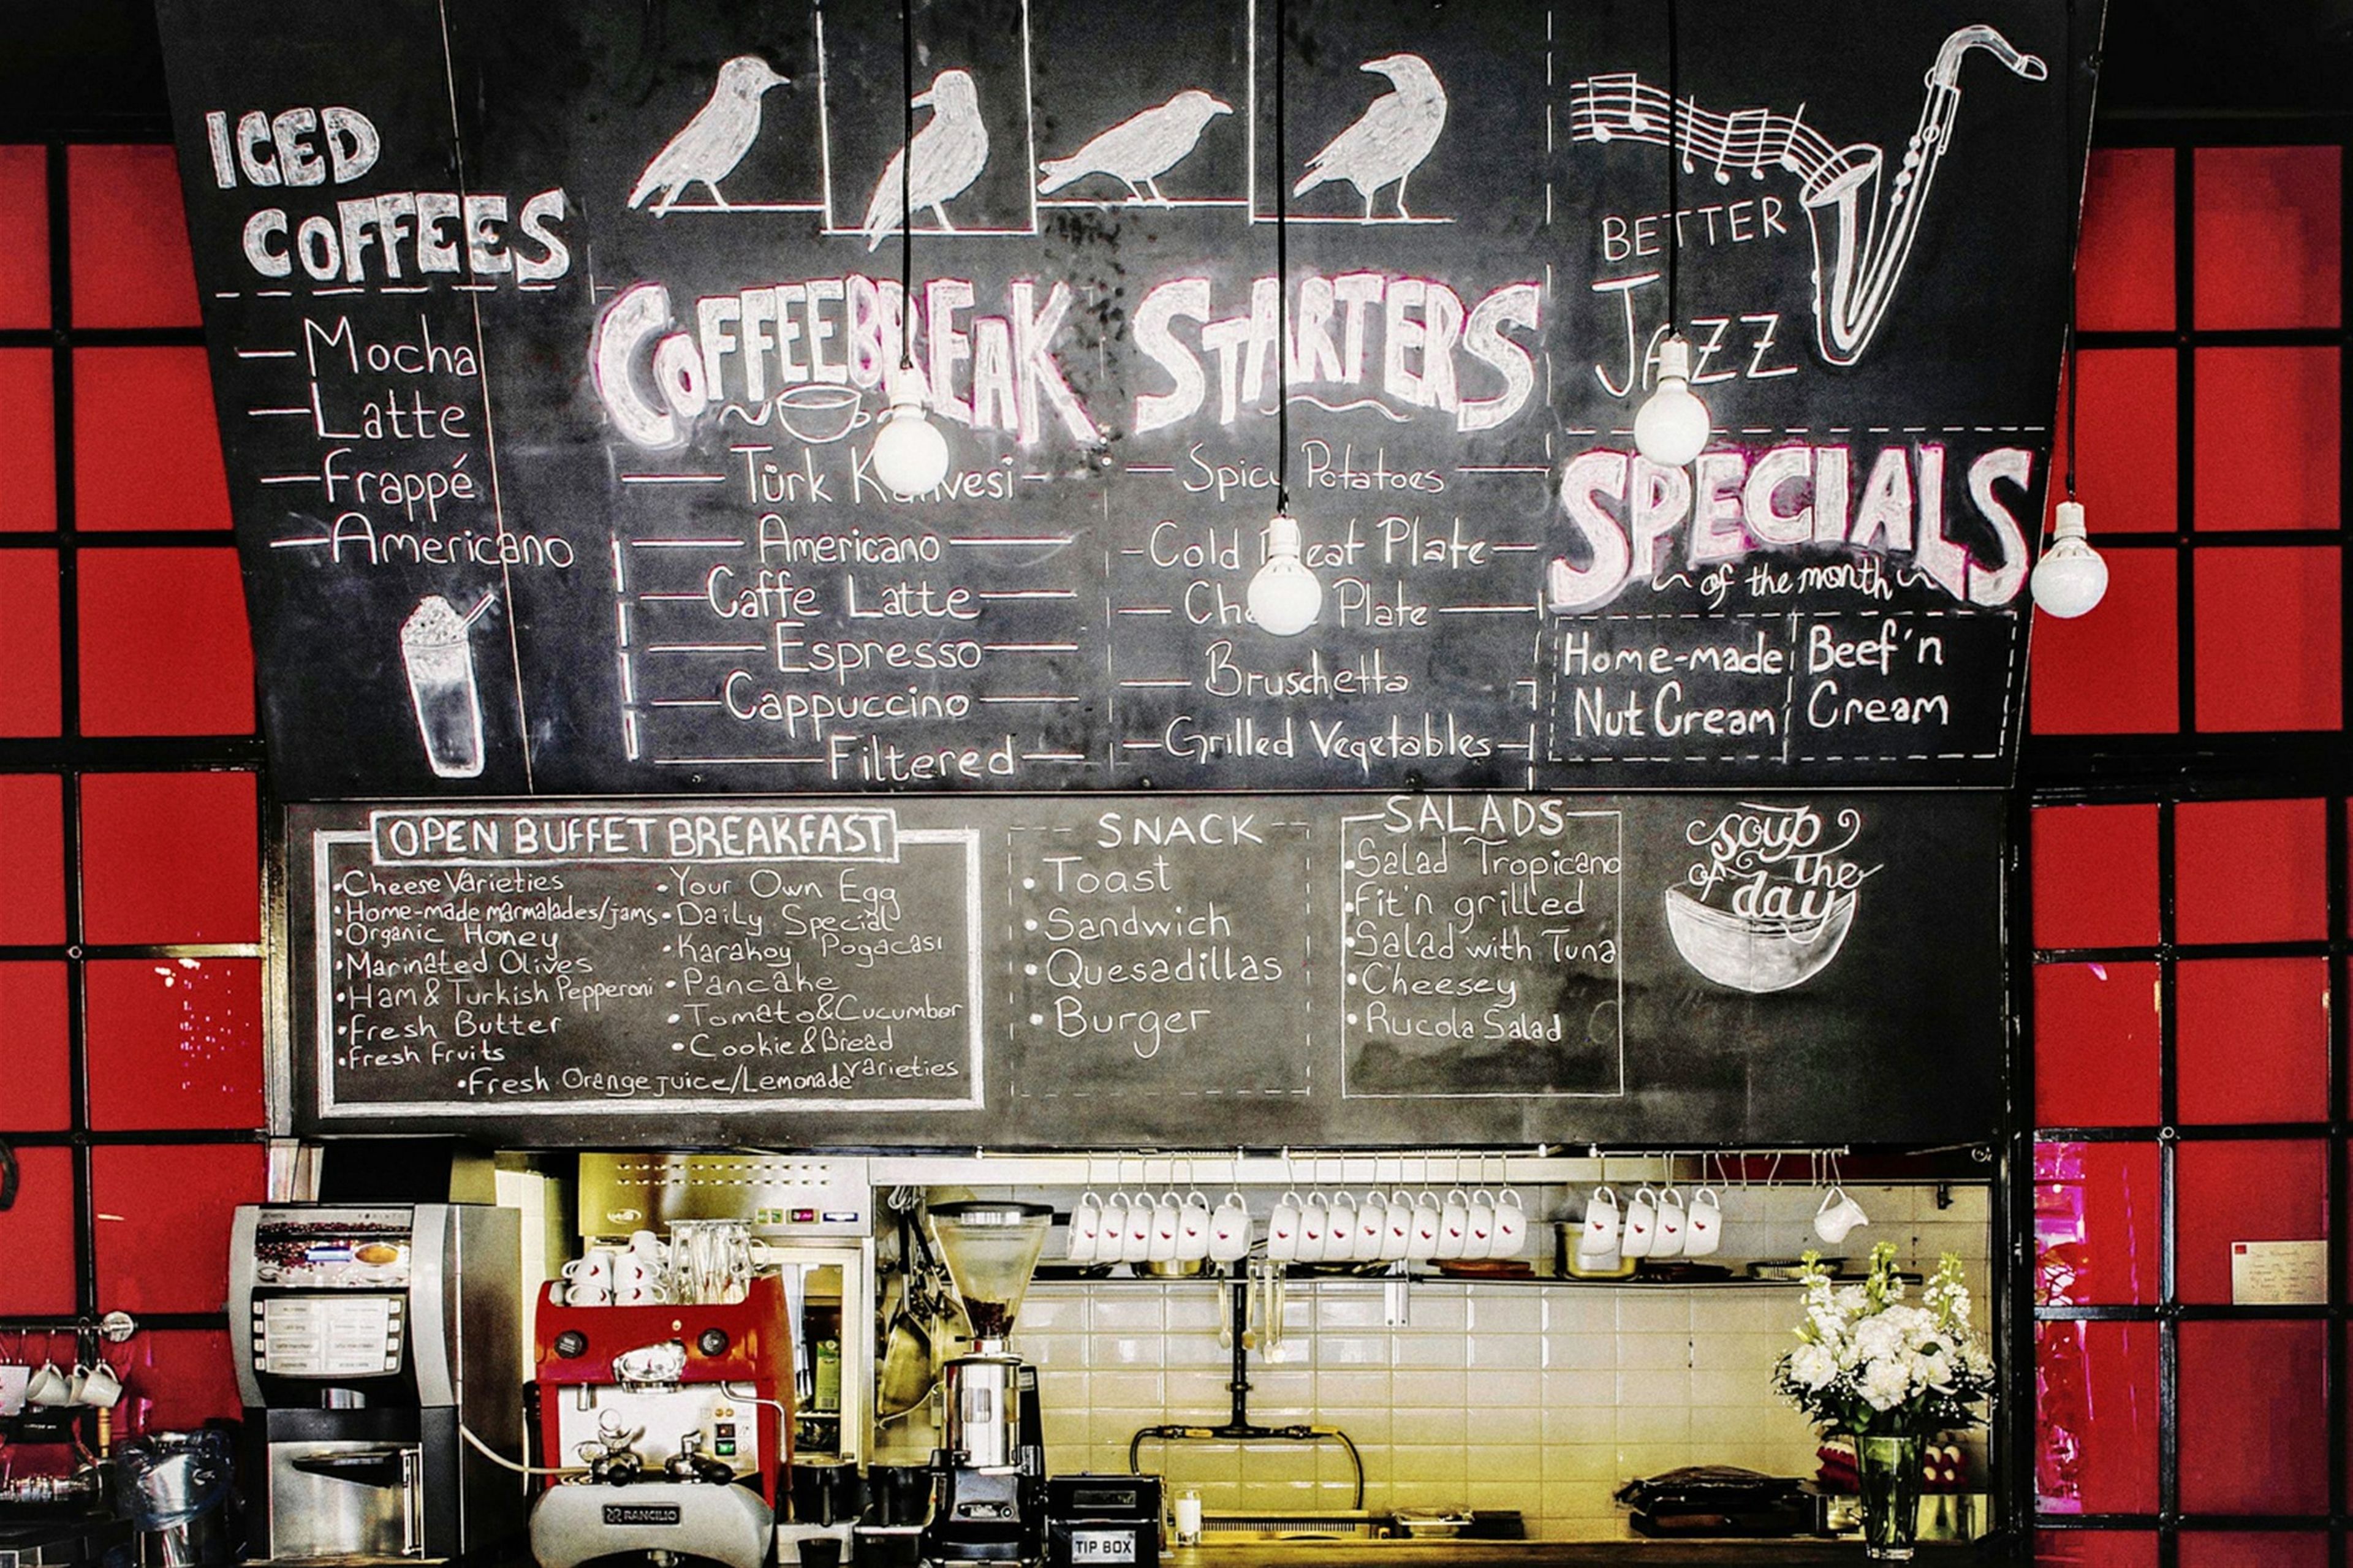 ICED
COFFEES
Mocha
Latte
Frappé
Americano
COFFEEBREAK
Türk
Americano
Caffe Latte
Espresso
Cappuccino
Filtered
STARTERS
Spicy Potatoes
Cold Meat Plate
Plate
Bruschetta
Grilled Vegetables
BETTER
JAZZ
SPECIALS
of the month
Home-made
Nut Cream
Beef'n
Cream
OPEN BUFFET BREAKFAST
•Cheese Varieties
•Home-made marmalades/jams
•Organic Honey
•Marinated Olives
•Ham & Turkish Pepperoni
•Fresh Butter
•Fresh Fruits
•Your Own Egg
•Daily Special
•Karakoy Pogacasi
•Pancake
•Tomato&Cucumber
•Cookie & Bread
varieties
•Fresh Orange juice/Lemonade
SNACK
•Toast
•Sandwich
•Quesadillas
•Burger
SALADS
•Salad Tropicano
•Fit'n grilled
•Salad with Tuna
•Cheesey
•Rucola Salad
soup
of The
day
RANCILIO
TIP BOX